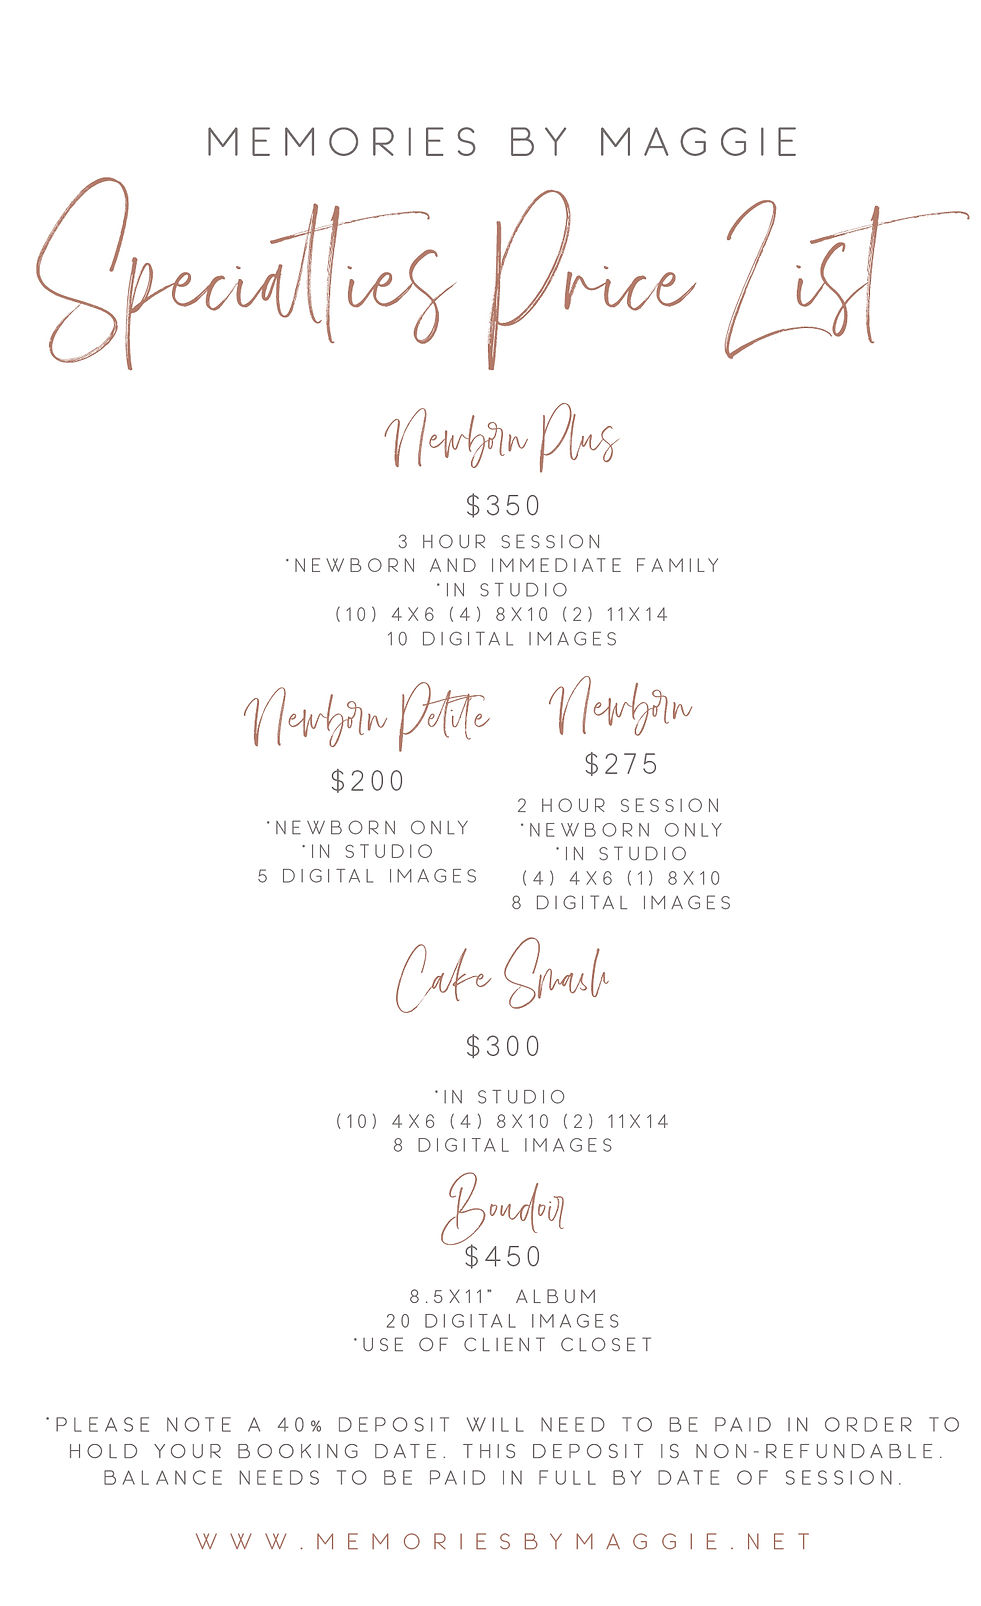 MEMORIES BY MAGGIE
Specialties Price List
Newborn Plus
$350
3 HOUR SESSION
*NEWBORN AND IMMEDIATE FAMILY
*IN STUDIO
(10) 4X6 (4) 8X10 (2) 11X14
10 DIGITAL IMAGES
Newborn Petite
$200
*NEWBORN ONLY
*IN STUDIO
5 DIGITAL IMAGES
Newborn
$275
2 HOUR SESSION
*NEWBORN ONLY
*IN STUDIO
(4) 4X6 (1) 8X10
8 DIGITAL IMAGES
Cake Smash
$300
*IN STUDIO
(10) 4X6 (4) 8X10 (2) 11X14
8 DIGITAL IMAGES
Boudoir
$450
8.5X11" ALBUM
20 DIGITAL IMAGES
*USE OF CLIENT CLOSET
*PLEASE NOTE A 40% DEPOSIT WILL NEED TO BE PAID IN ORDER TO
HOLD YOUR BOOKING DATE. THIS DEPOSIT IS NON-REFUNDABLE.
BALANCE NEEDS TO BE PAID IN FULL BY DATE OF SESSION.
WWW.MEMORIESBYMAGGIE.NET